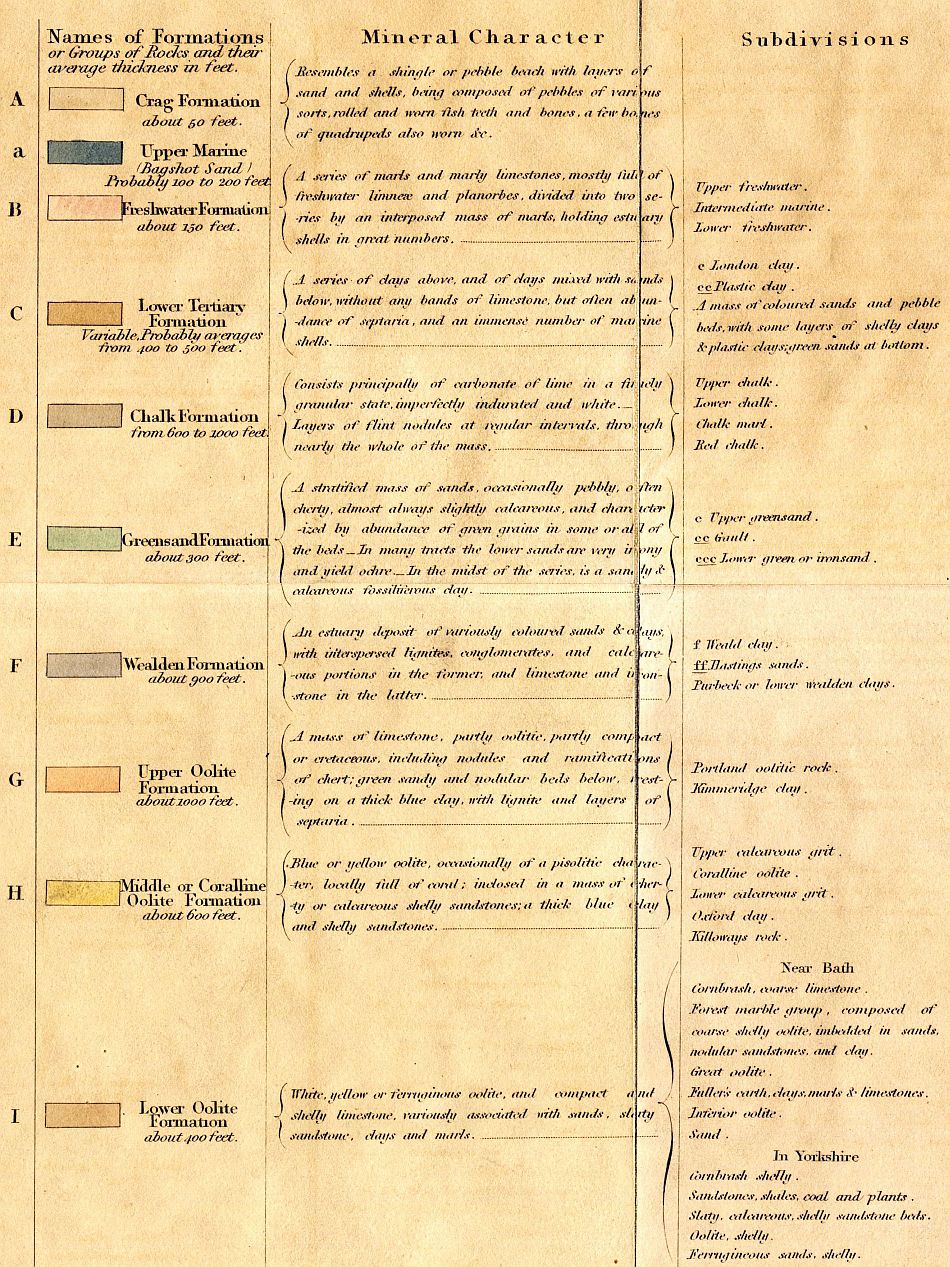 Names of Formations
or Groups of Rocks and their
average thickness in feet.
Mineral Character
Subdivisions
A
Crag Formation
about 50 feet.
Resembles a shingle or pebble beach with layers of
sand and shells, being composed of pebbles of various
sorts, rolled and worn fish teeth and bones, a few bones
of quadrupeds also worn &c.
a
Upper Marine
(Bagshot Sand)
Probably 100 to 200 feet
B
Freshwater Formation
about 150 feet.
A series of marls and marly limestones, mostly full of
freshwater limneæ and planorbes, divided into two se-
-ries by an interposed mass of marls, holding estuary
shells in great numbers.
Upper freshwater.
Intermediate marine.
Lower freshwater.
C
Lower Tertiary
Formation
Variable, Probably averages
from 400 to 500 feet.
A series of clays above, and of clays mixed with sands
below, without any bands of limestone, but often abun-
-dance of septaria, and an immense number of marine
shells.
c London clay.
cc Plastic clay.
A mass of coloured sands and pebble
beds, with some layers of shelly clays
& plastic clays; green sands at bottom.
D
Chalk Formation
from 600 to 1000 feet.
Consists principally of carbonate of lime in a finely
granular state, imperfectly indurated and white._
Layers of flint nodules at regular intervals, through
nearly the whole of the mass.
Upper chalk.
Lower chalk.
Chalk marl.
Red chalk.
E
Greensand Formation
about 300 feet.
A stratified mass of sands, occasionally pebbly, often
cherty, almost always slightly calcareous, and character
-ized by abundance of green grains in some or all of
the beds_In many tracts the lower sands are very irony
and yield ochre._In the midst of the series, is a sandy &
calcareous fossiliferous clay.
e Upper greensand.
ee Gault.
eee Lower green or ironsand.
F
Wealden Formation
about 900 feet.
An estuary deposit of variously coloured sands & clays,
with interspersed lignites, conglomerates, and calcare-
-ous portions in the former, and limestone and iron-
-stone in the latter.
f Weald clay.
ff Hastings sands.
Purbeck or lower wealden clays.
G
Upper Oolite
Formation
about 1000 feet.
A mass of limestone, partly oolitic, partly compact
or cretaceous, including nodules and ramifications
of chert; green sandy and nodular beds below, rest-
-ing on a thick blue clay, with lignite and layers of
septaria.
Portland oolitic rock.
Kimmeridge clay.
H
Middle or Coralline
Oolite Formation
about 600 feet.
Blue or yellow oolite, occasionally of a pisolitic charac-
-ter, locally full of coral; inclosed in a mass of cher-
-ty or calcareous shelly sandstones; a thick blue clay
and shelly sandstones.
Upper calcareous grit.
Coralline oolite.
Lower calcareous grit.
Oxford clay.
Killoways rock.
I
Lower Oolite
Formation
about 400 feet.
White, yellow or ferruginous oolite, and compact and
shelly limestone, variously associated with sands, slaty
sandstone, clays and marls.
Near Bath
Cornbrash, coarse limestone.
Forest marble group, composed of
coarse shelly oolite, imbedded in sands,
nodular sandstones, and clay.
Great oolite.
Fuller's earth, clays, marls & limestones.
Inferior oolite.
Sand.
In Yorkshire
Cornbrash shelly.
Sandstones, shales, coal and plants.
Slaty, calcareous, shelly sandstone beds.
Oolite, shelly.
Ferrugineous sands, shelly.